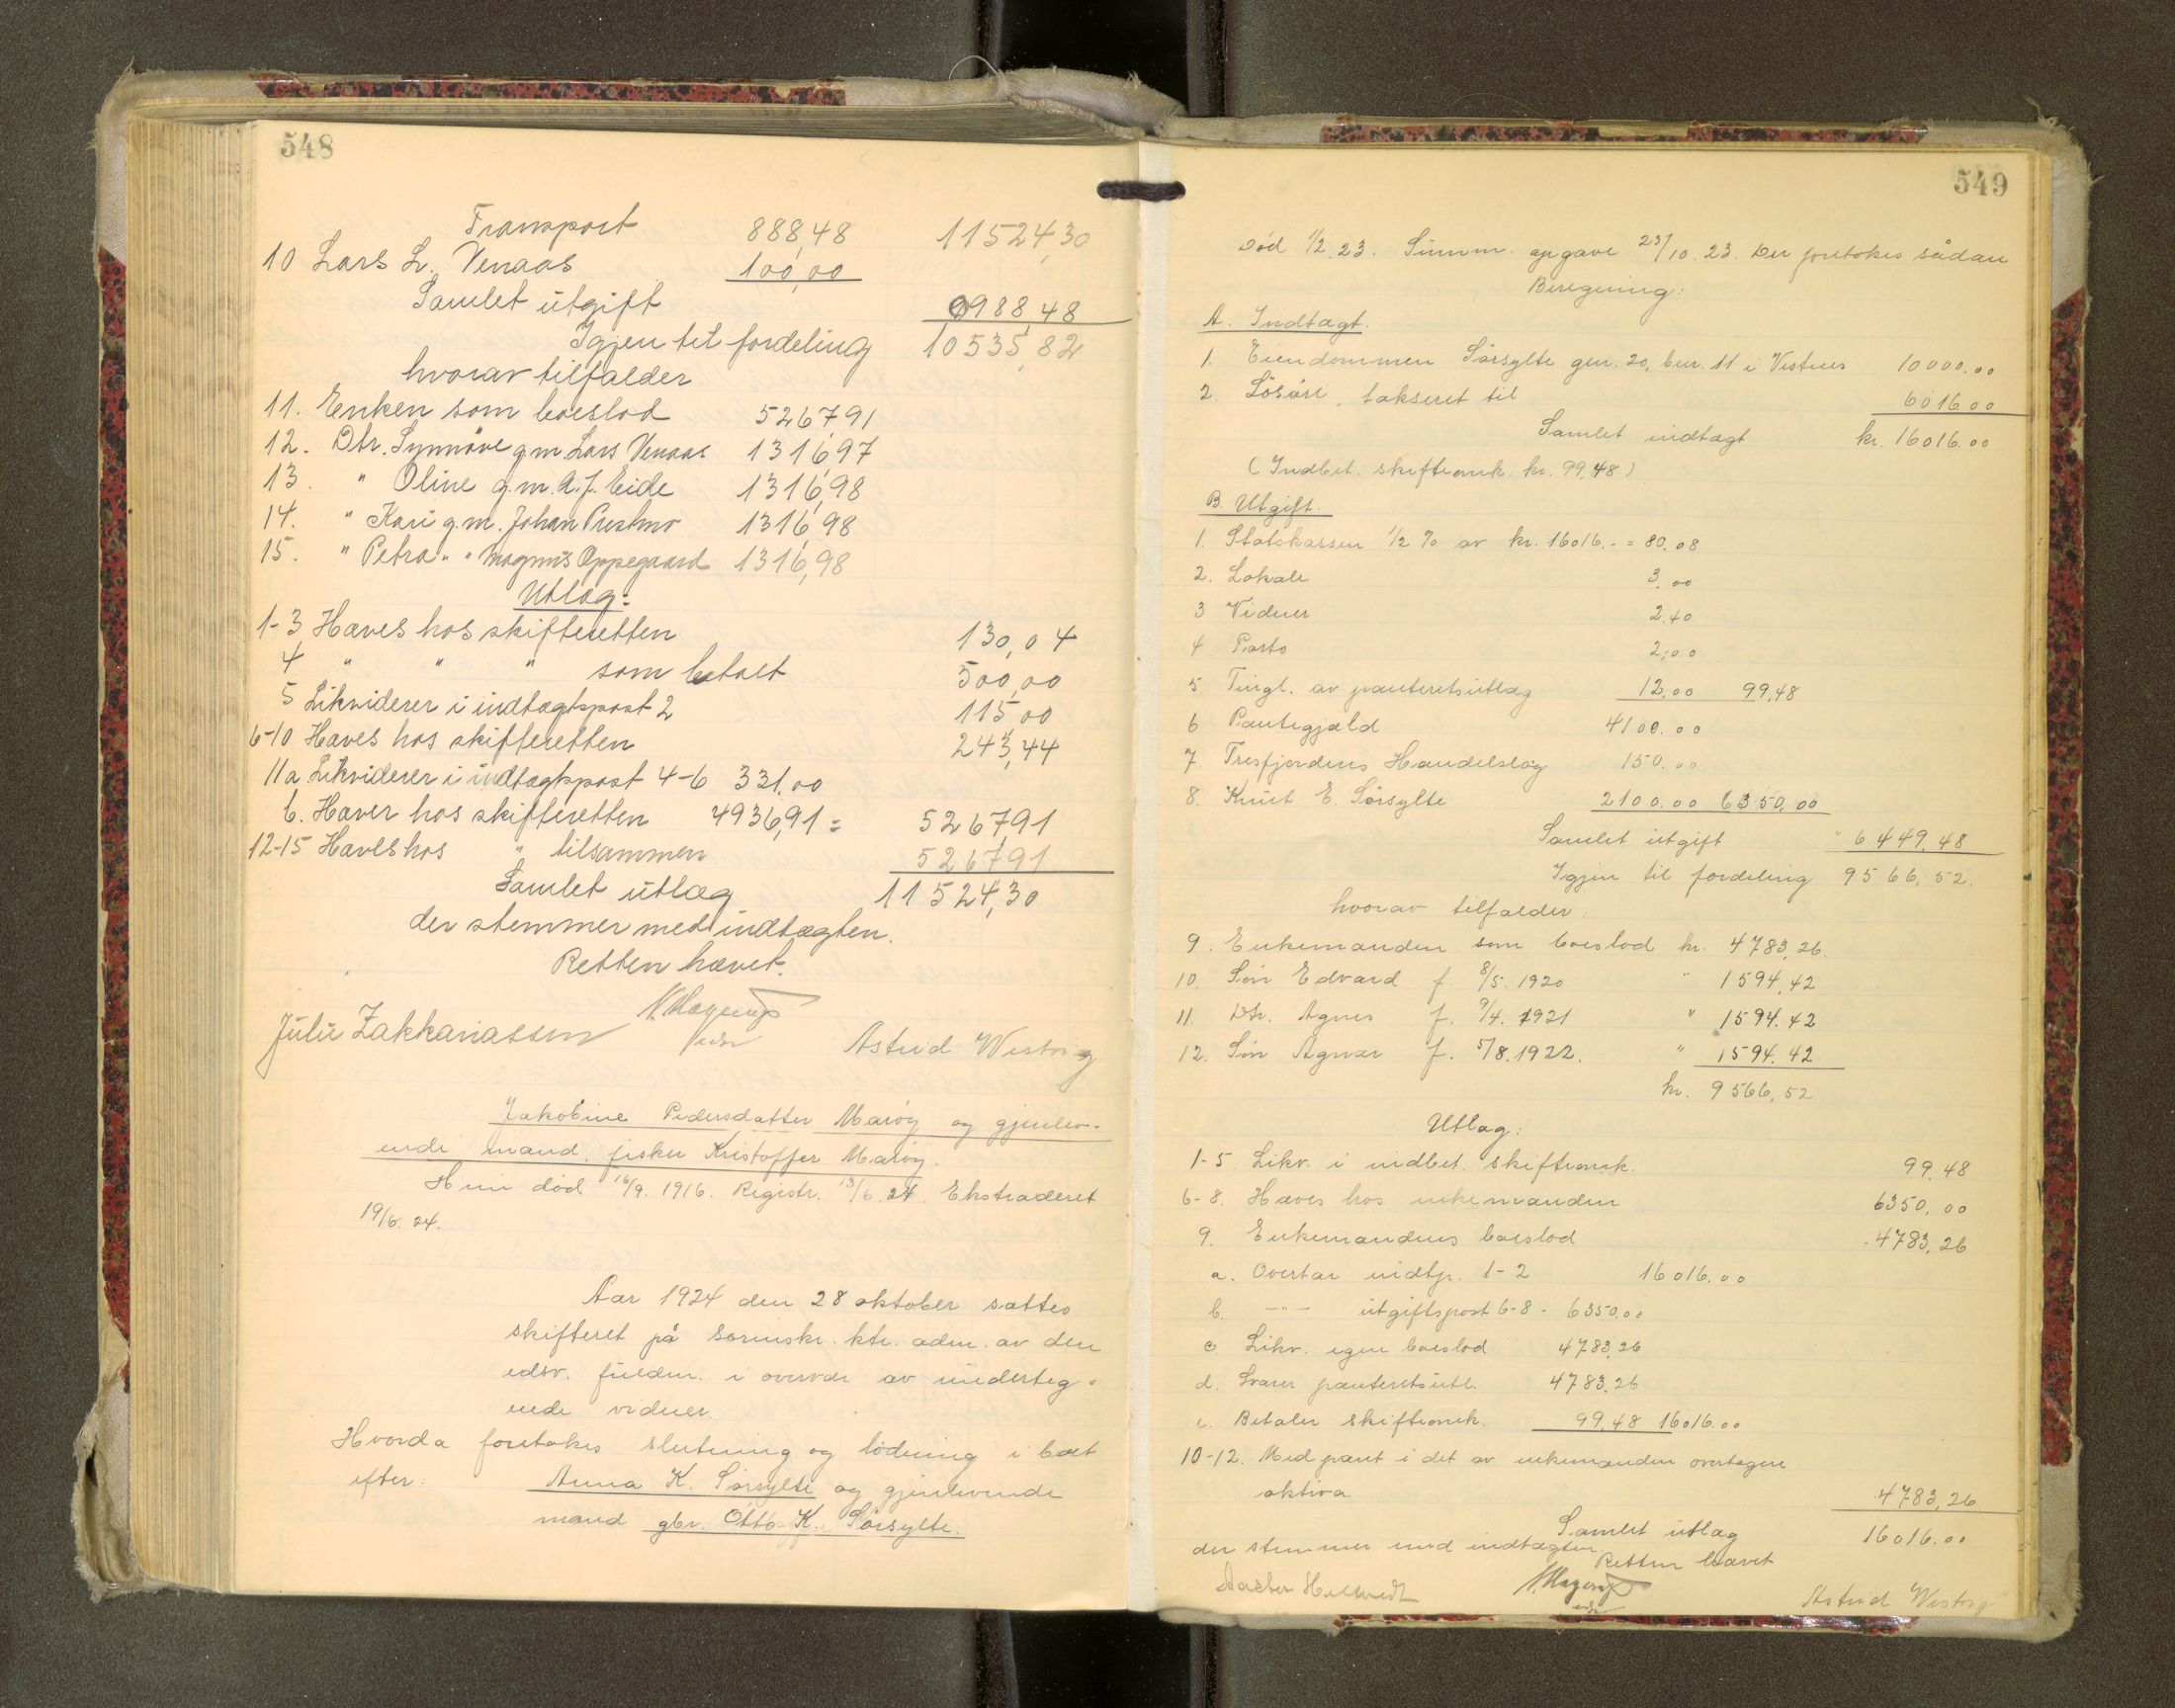 548
Transport 888,48 11524,30
10 Lars L. Venaas 100,00
Samlet utgift 988,48
Igjen til fordeling 10535,82
hvorav tilfalder
11. Enken som boeslod 5267,91
12. Dtr. Synnøve g.m. Lars Venaas 1316,97
13. " Oline g.m. A. J. Eide 1316,98
14. " Kari g.m. Johan Prestmo 1316,98
15. " Petra " " Magnus Oppegaard 1316,98
Utlæg:
1-3 Haves hos skifteretten 130,04
4 " " " som betalt 500,00
5 Likviderer i indtægtspost 2 115,00
6-10 Haves hos skifteretten 243,44
11a Likviderer i indtægtspost 4-6 331,00
b. Haver hos skifteretten 4936,91 = 5267,91
12-15 Haves hos " tilsammen 5267,91
Samlet utlæg 11524,30
der stemmer med indtægten.
Retten hævet.
N. Hagerup
Juli Zakkariassen edsv Astrid Westvig
Jakobine Pedersdatter Marøy og gjenlev-
ende mand, fisker Kristoffer Marøy.
Hun død 16/9. 1916. Registr. 13/6. 24. Ekstraderet
19/6. 24.
Aar 1924 den 28 oktober sattes
skifteret på sorenskr. ktr. adm. av den
edsv. fuldm. i overvær av underteg-
nede vidner.
Hvorda foretokes slutning og lodning i boet
efter: Anna K. Sørsylte og gjenlevende
mand gbr. Otto K. Sørsylte.
549
Død 1/2 23. Summ. opgave 23/10. 23. Der foretokes sådan
Beregning:
A. Indtægt.
1. Eiendommen Sørsylte gnr. 20, bnr. 11 i Vestnes 10000.00
2. Løsøre, takseret til 6016.00
Samlet indtægt kr. 16016.00
(Indbet. skifteomk. kr. 99,48)
B. Utgift.
1. Statskassen 1/2 % av kr. 16016.- = 80.08
2. Lokale 3.00
3 Vidner 2.40
4 Porto 2,00
5 Tingl. av panteretsutlæg 12.00 99,48
6 Pantegjæld 4100.00
7. Tresfjordens Handelslag 150.00
8. Knut E. Sørsylte 2100.00 6350.00
Samlet utgift " 6449.48
Igjen til fordeling 9566,52.
hvorav tilfalder:
9. Enkemanden som boeslod kr. 4783,26.
10. Søn Edvard f. 8/5. 1920 " 1594,42
11. Dtr. Agnes f. 9/4. 1921 " 1594.42
12. Søn Agnar f. 5/8. 1922. " 1594.42
kr. 9566,52
Utlæg:
1-5 Likv. i indbet. skifteomk. 99,48
6-8. Haves hos enkemanden 6350.00
9. Enkemandens boeslod 4783,26
a. Overtar indtp. 1-2 16016.00
b. -"- utgiftspost 6-8 - 6350.00
c. Likv. egen boeslod 4783,26
d. Svarer panteretsutl. 4783,26
e. Betaler skifteomk. 99,48 16016.00
10-12. Med pant i det av enkemanden overtagne
aktiva 4783,26
Samlet utlæg 16016.00
der stemmer med indtægten.
Retten hævet
N. Hagerup
edsv Astrid Westvig